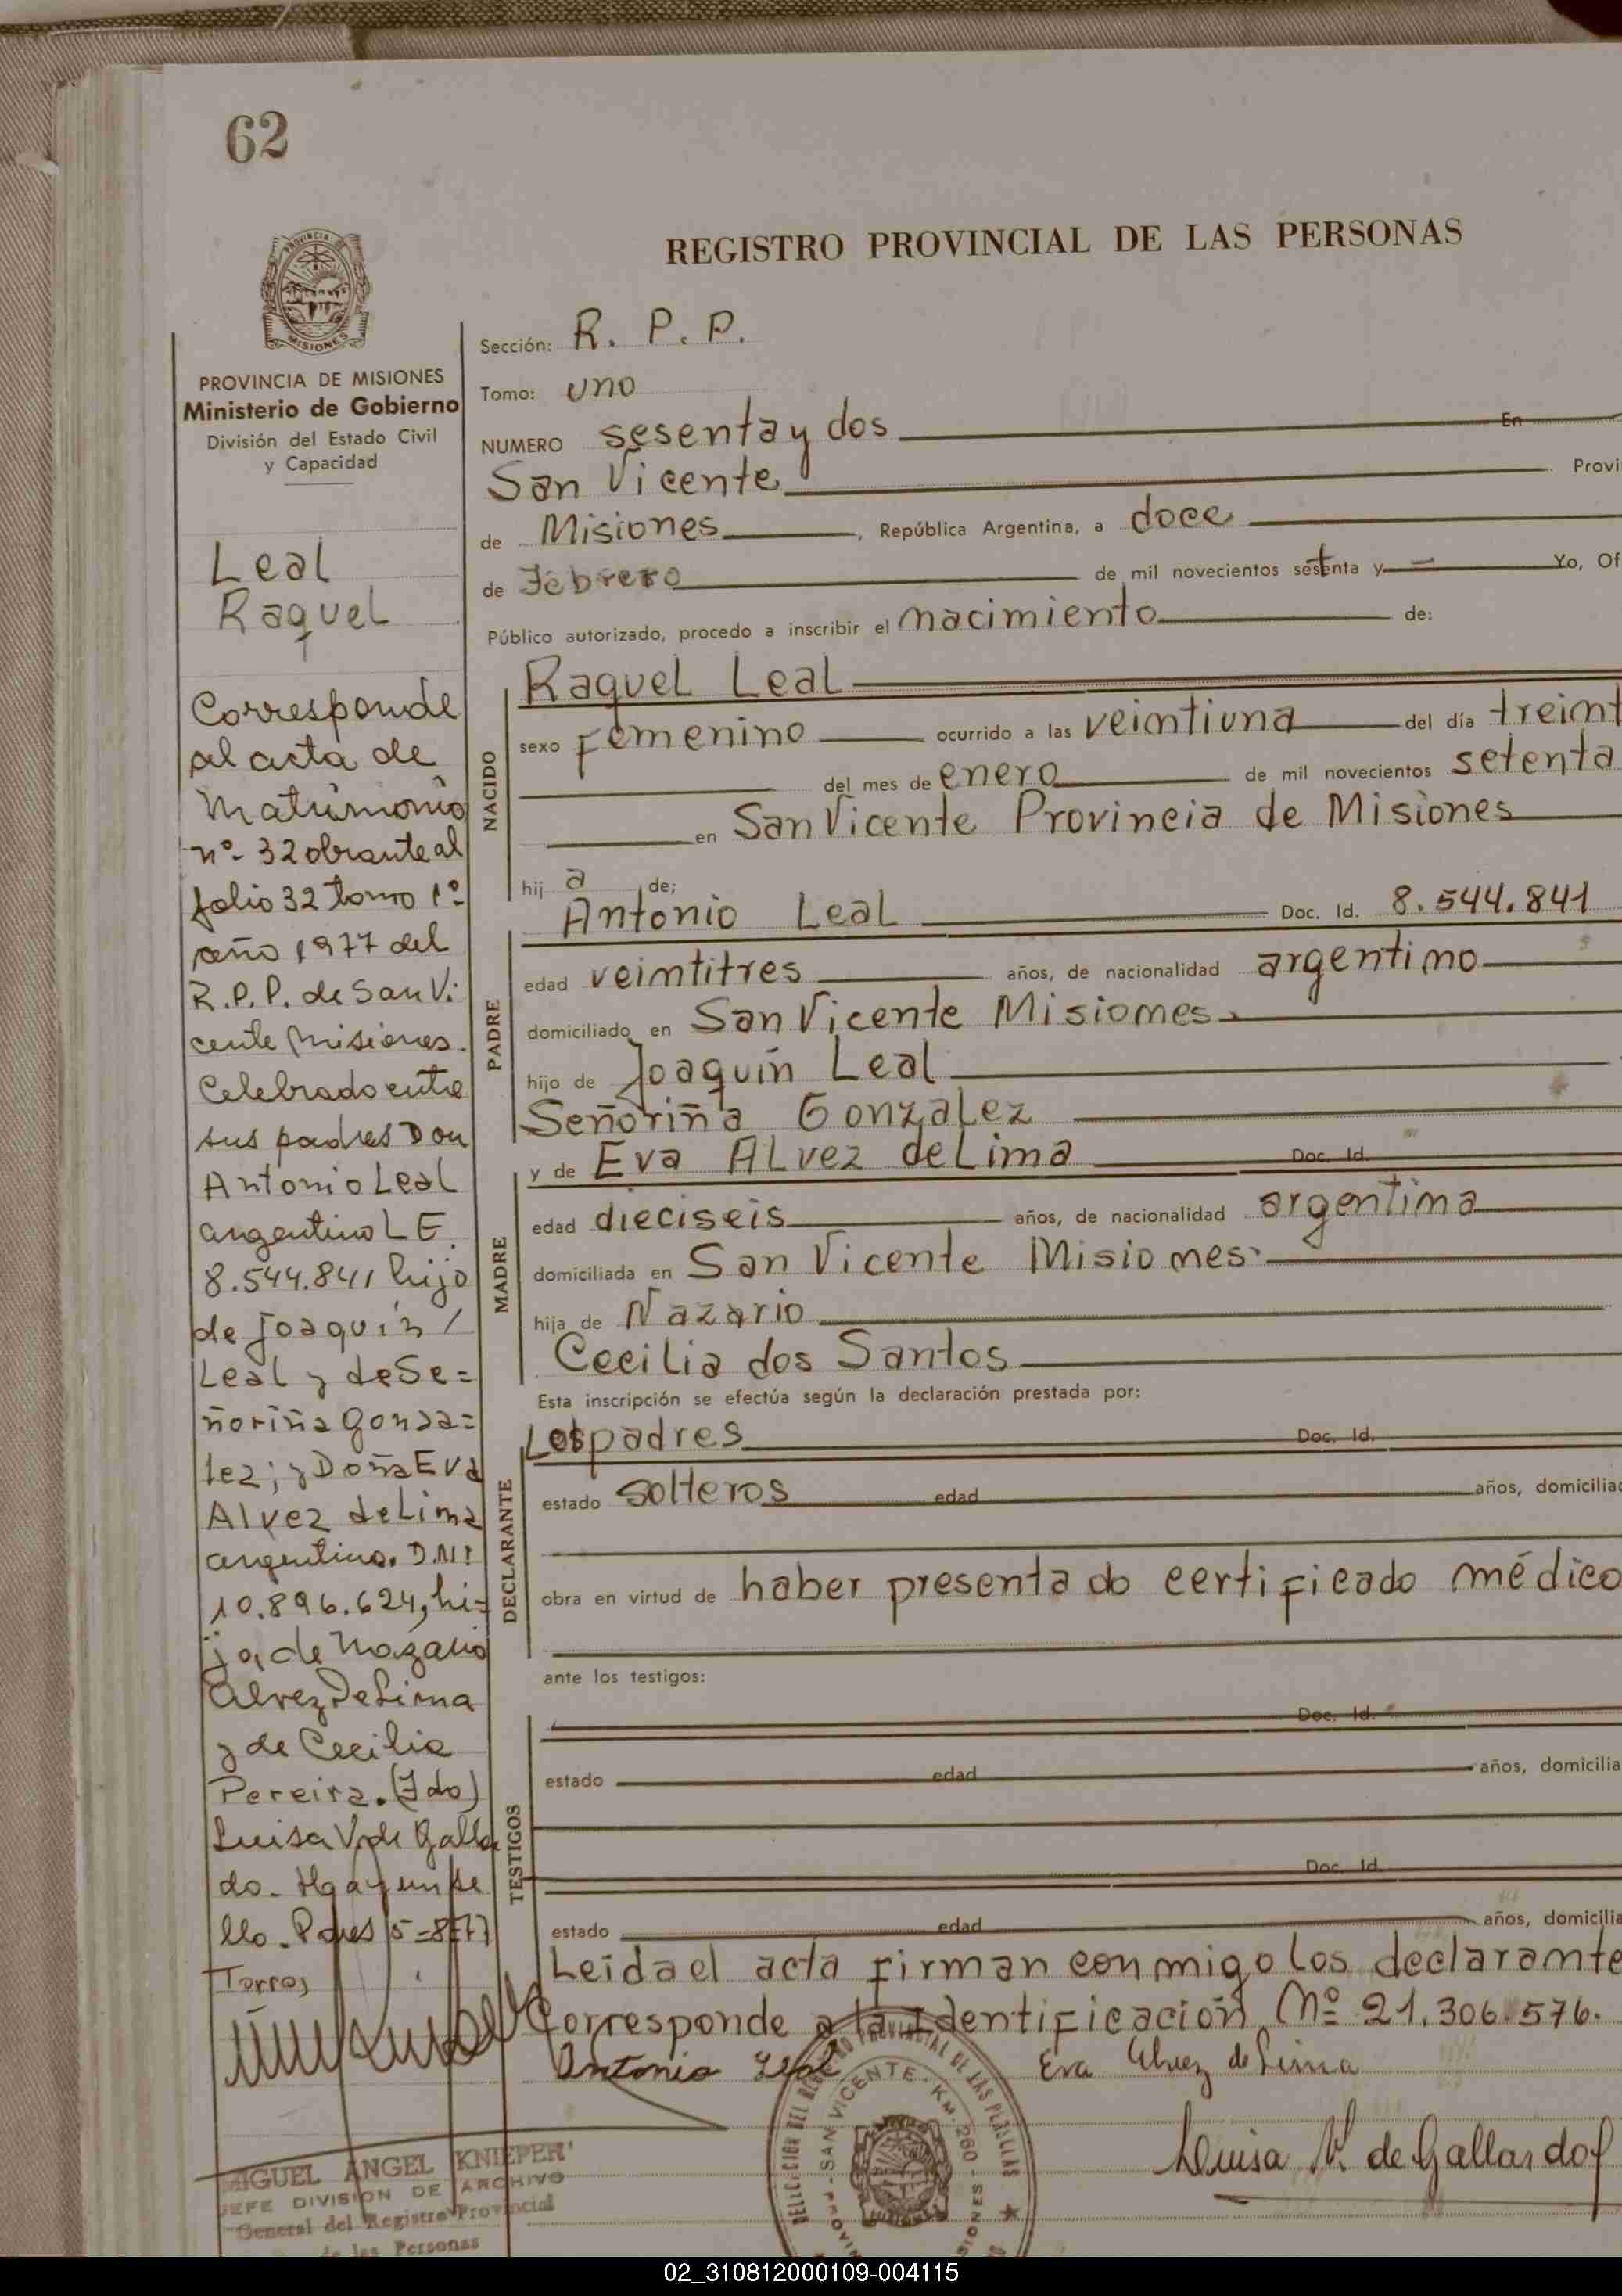 62
REGISTRO PROVINCIAL DE LAS PERSONAS
PROVINCIA DE MISIONES
Ministerio de Gobierno
División del Estado Civil
y Capacidad
Leal
Raquel
Corresponde
al acta de
Matrimonio
nº- 32 obrante al
folio 32 tomo 1º
año 1977 del
R.P.P. de San Vi
cente Misiones.
Celebrado entre
sus padres Don
Antonio Leal
argentino L E.
8.544.841 hijo
de Joaquín /
Leal y de Se=
ñoriña Gonza=
lez; y Doña Eva
Alvez de Lima
argentina. D.N.I
10.896.624, hi=
ja, de Nazario
Alvez De Lima
y de Cecilia
Pereira. (Fdo)
Luisa V. de Galla
do. Hay un se
llo. Pdas 15-8-77
Torres
MIGUEL ANGEL KNIEPER
JEFE DIVISION DE ARCHIVO
General del Registro Provincial
de las Personas
Sección: R. P. P.
Tomo: uno
NUMERO sesenta y dos En
San Vicente Provi
de Misiones, República Argentina, a doce
de Febrero de mil novecientos setenta y Yo, Of
Público autorizado, procedo a inscribir el nacimiento de:
NACIDO
Raquel Leal
sexo Femenino ocurrido a las veintiuna del día treint
del mes de enero de mil novecientos setenta
en San Vicente Provincia de Misiones
hij a de;
PADRE
Antonio Leal Doc. Id. 8.544.841
edad veintitres años, de nacionalidad argentino
domiciliado en San Vicente Misiones
hijo de Joaquín Leal
Señoriña Gonzalez
MADRE
y de Eva Alvez de Lima Doc. Id.
edad dieciseis años, de nacionalidad argentina
domiciliada en San Vicente Misiones
hija de Nazario
Cecilia dos Santos
Esta inscripción se efectúa según la declaración prestada por:
DECLARANTE
Los padres Doc. Id.
estado solteros edad años, domicilia
obra en virtud de haber presentado certificado médico
ante los testigos:
TESTIGOS
Doc. Id.
estado edad años, domicilia
Doc. Id.
estado edad años, domicilia
Leida el acta firman conmigo los declarante
Corresponde a la Identificación Nº 21.306.576.
Antonio Leal Eva Alvez de Lima
Luisa V. de Gallardo
SAN VICENTE - KM. 260 -
02_310812000109-004115